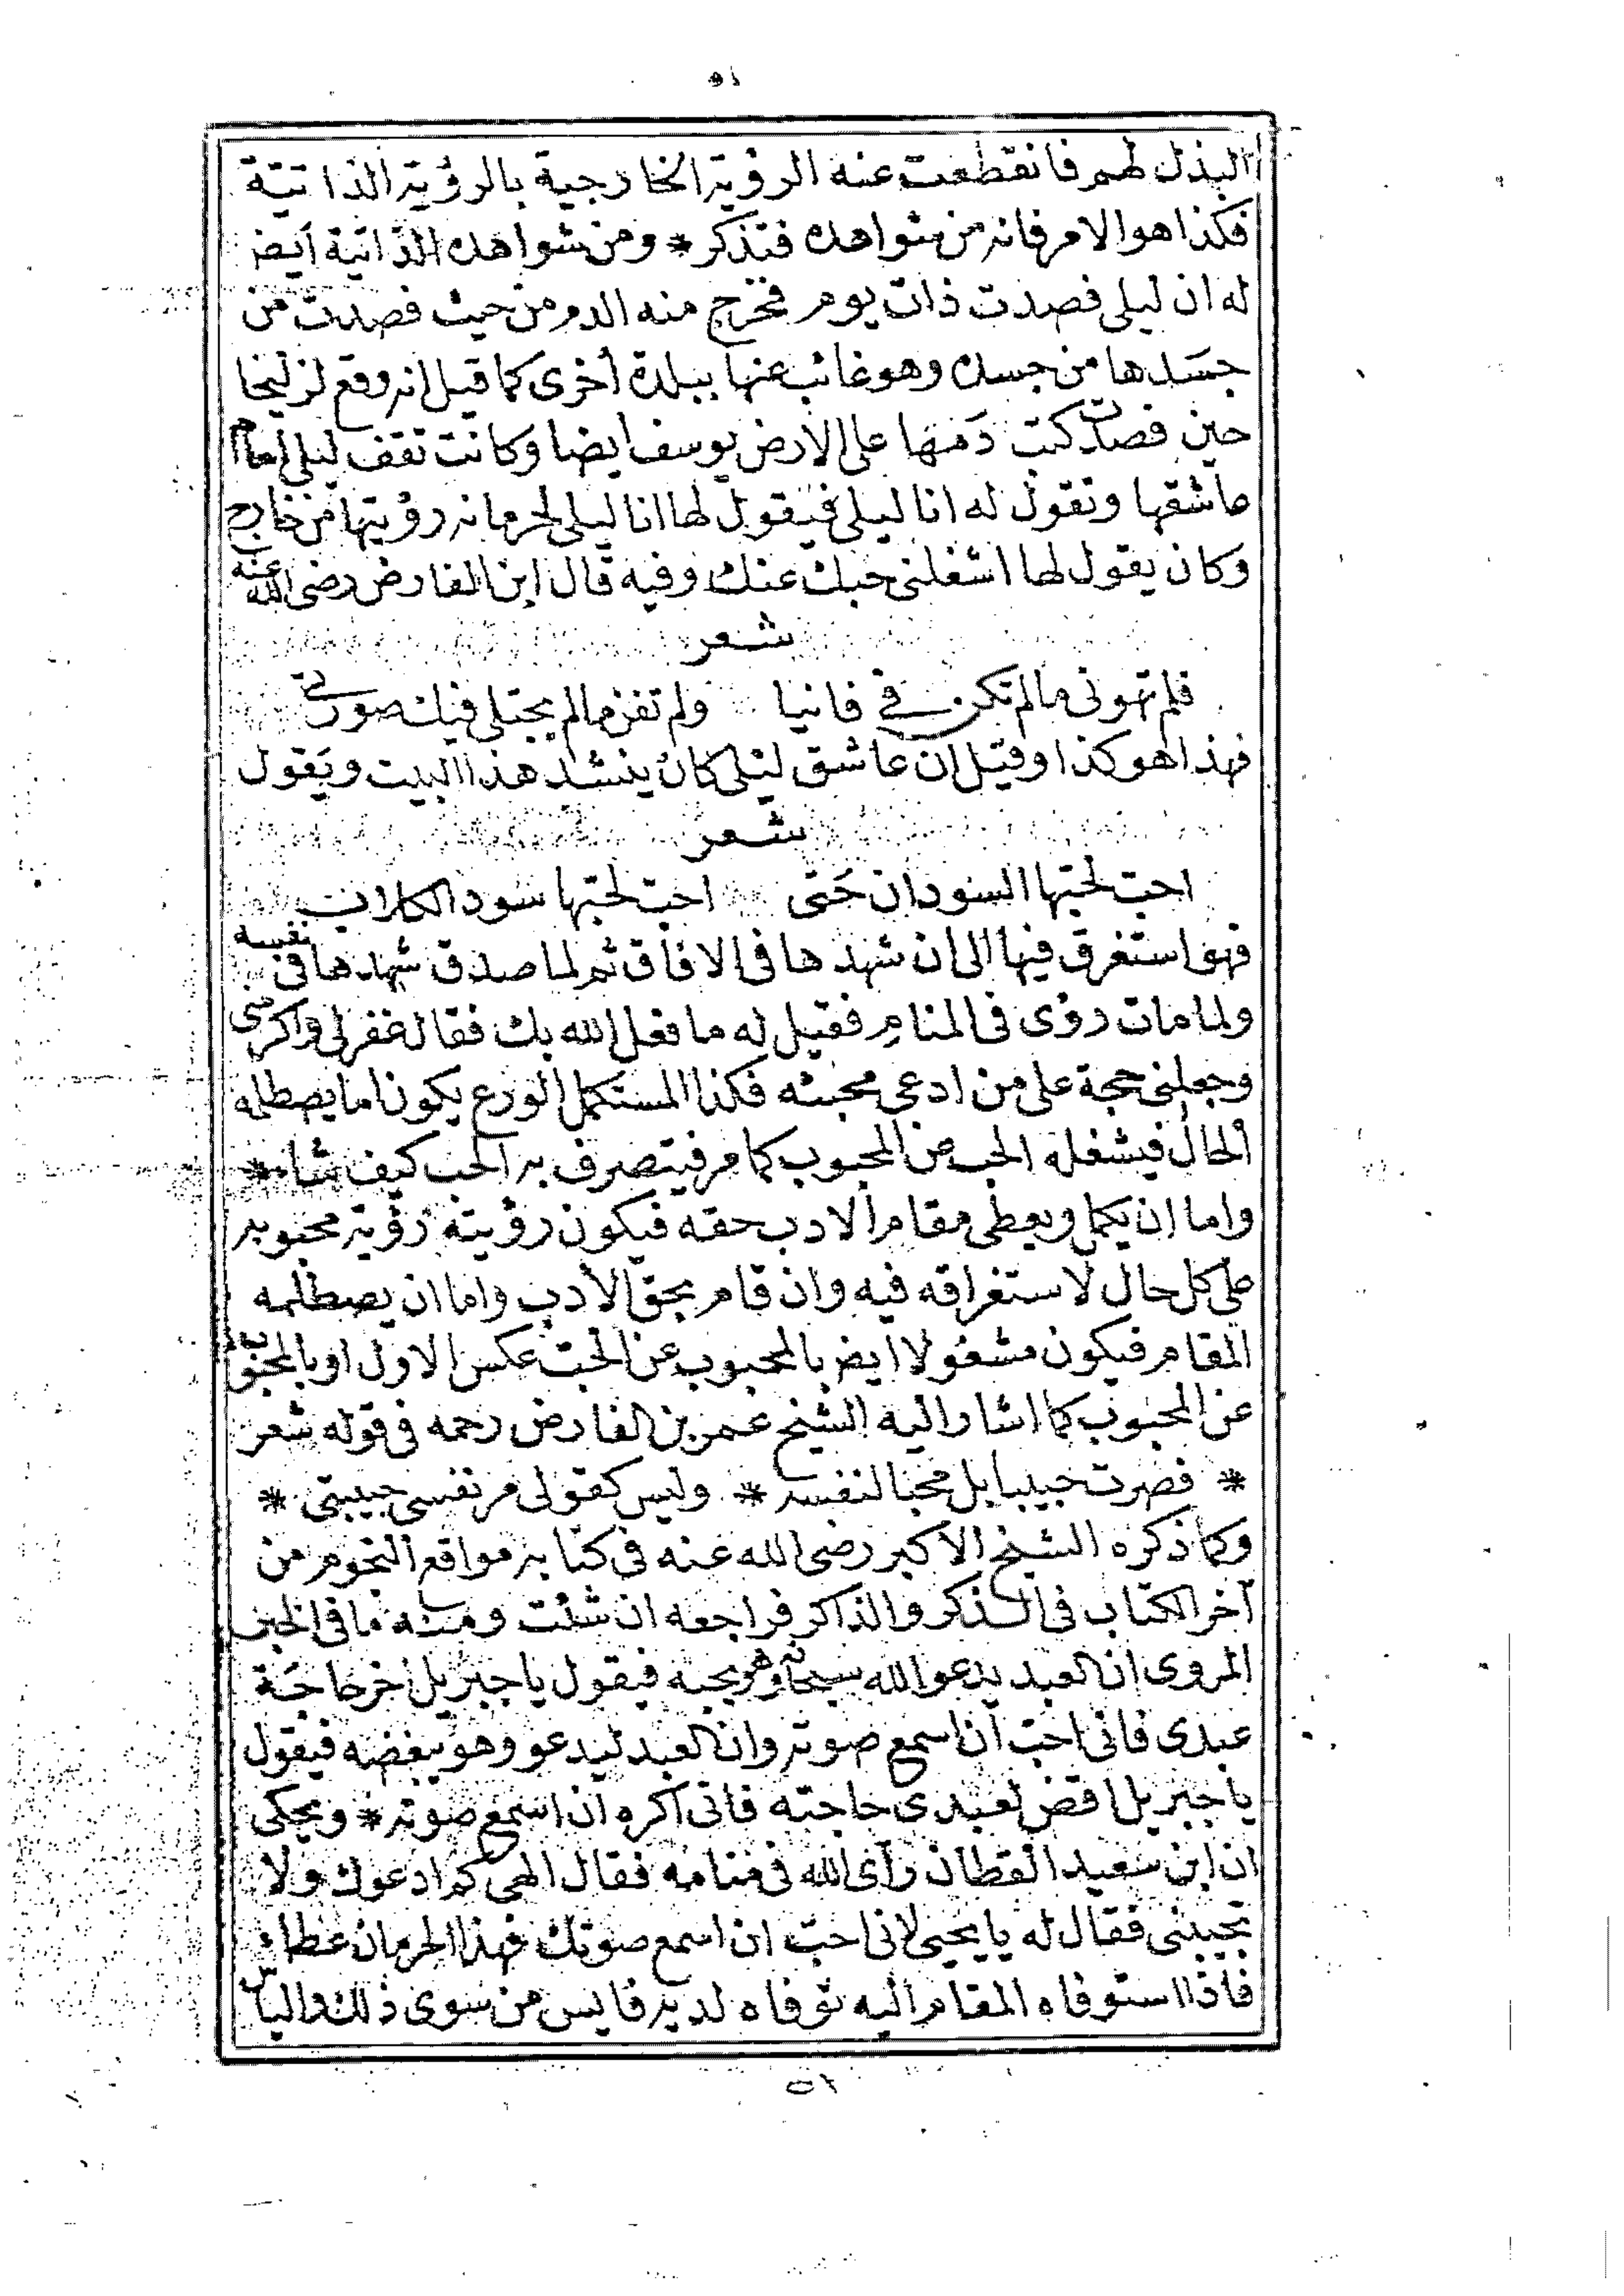 ٥١
البذل لهم فانقطعت عنه الرؤية الخارجية بالرؤية الذاتية
فكذا هو الامر فانه من شواهده فتذكر * ومن شواهده الذاتية ايض
له ان ليلى فصدت ذات يوم فخرج منه الدم من حيث فصدت من
جسدها من جسده وهو غائب عنها ببلدة أخرى كما قيل انه وقع لزليخا
حين فصدت كتب دمها على الارض يوسف ايضا وكانت تقف ليلى امام
عاشقها وتقول له انا ليلى فيقول لها انا ليلى لحرمانه رؤيتها من خارج
وكان يقول لها اشغلنى حبك عنك وفيه قال ابن الفارض رضى الله عنه
شعر
فلم تهونى ما لم تكن في فانيا ولم تفن ما لم يجتلى فيك صورتي
فهذا هو كذا وقيل ان عاشق ليلى كان ينشد هذا البيت ويقول
شعر
احب لحبها السودان حتى احب لحبها سود الكلاب
فهو استغرق فيها الى ان شهدها فى الافاق ثم لما صدق شهدها فى نفسه
ولما مات رؤى فى المنام فقيل له ما فعل الله بك فقال غفر لى واكرمنى
وجعلنى حجة على من ادعى محبته فكذا المستكمل الورع يكون اما يصطلمه
الحال فيشغله الحب عن المحبوب كما مر فيتصرف به الحب كيف شاء *
واما ان يكمل ويعطى مقام الادب حقه فيكون رؤيته رؤية محبوبه
على كل حال لاستغراقه فيه وان قام بحق الأدب واما ان يصطلمه
المقام فيكون مشغولا ايض بالمحبوب عن الحب عكس الاول او بالمحبوب
عن المحبوب كما اشار اليه الشيخ عمر بن الفارض رحمه فى قوله شعر
* فصرت حبيبا بل محبا لنفسه * وليس كقولى مر نفسى حبيبتى *
وكما ذكره الشيخ الاكبر رضى الله عنه فى كتابه مواقع النجوم من
آخر الكتاب فى الذكر والذاكر فراجعه ان شئت ومنه ما فى الخبر
المروى ان العبد يدعو الله سبحانه وهو يحبه فيقول يا جبريل اخر حاجة
عبدى فانى احب ان اسمع صوته وان العبد ليدعو وهو يبغضه فيقول
يا جبريل اقض لعبدى حاجته فانى اكره ان اسمع صوته * ويحكى
ان ابن سعيد القطان رأى الله فى منامه فقال الهى كم ادعوك ولا
تجيبنى فقال له يا يحيى لانى احب ان اسمع صوتك فهذا الحرمان عطاء
فاذا استوفاه المقام اليه توفاه لديه فايس من سوى ذلك والياس
٥١